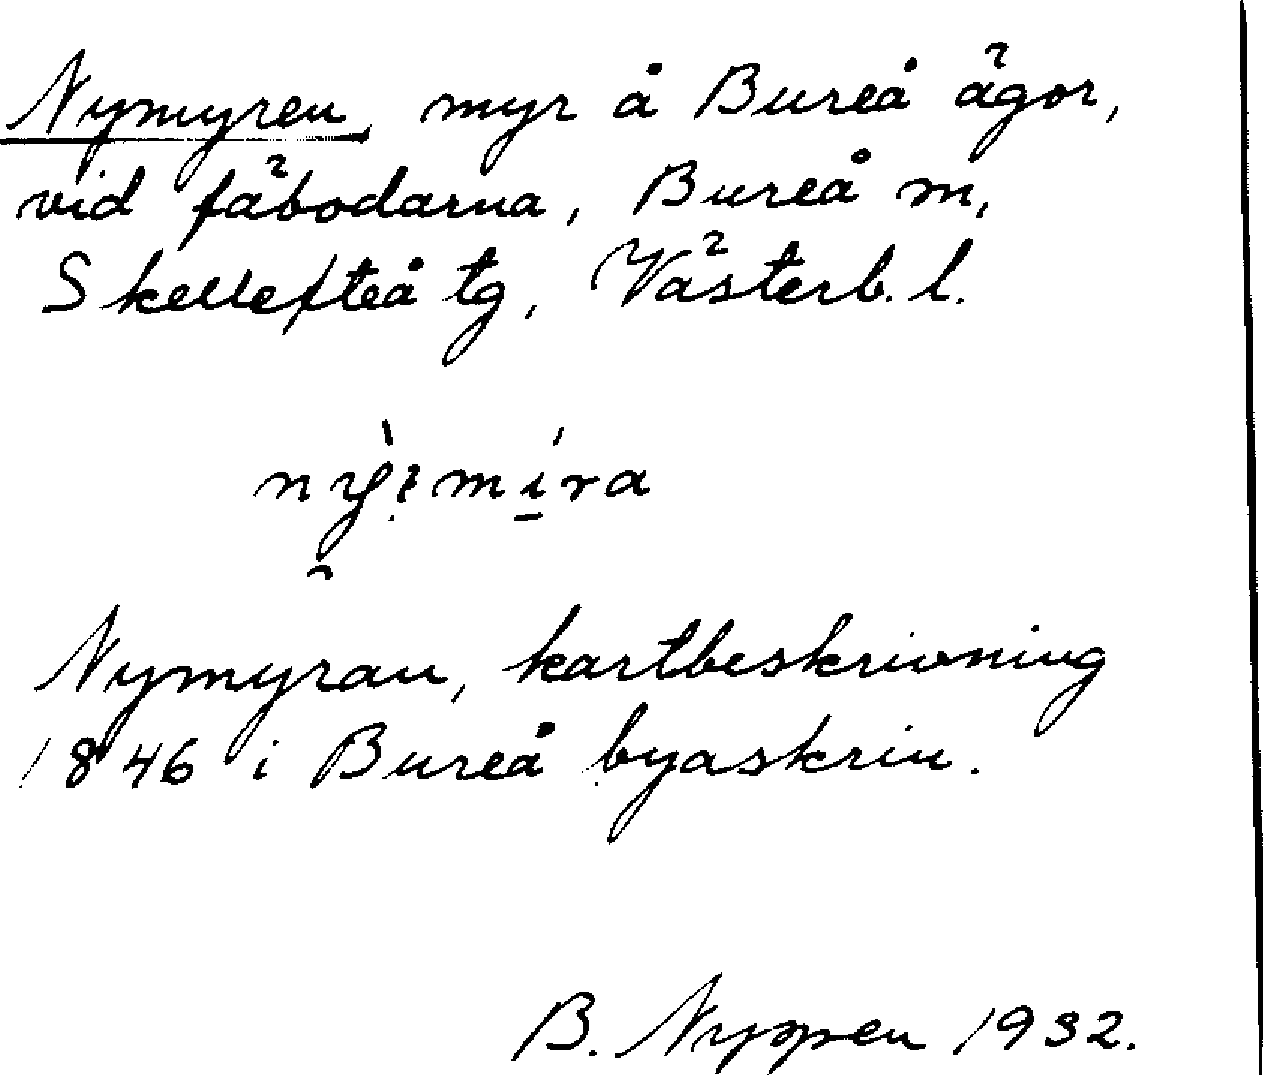 Nymyren, myr å Bureå ägor,
vid fäbodarna, Bureå m,
Skellefteå tg, Västerb. l.
Nymyran, kartbeskrivning
1846 i Bureå byaskrin.
B. Nyppen 1932.